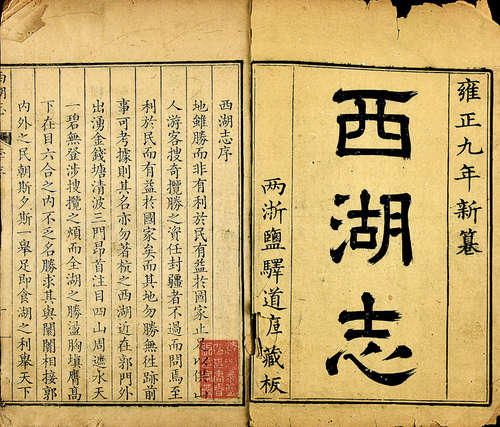 雍正九年新纂
西湖志
两浙鹽驛道庫藏板
西湖志序
地雖勝而非有利於民有益於國家止足以供山
人游客搜奇攬勝之資任封疆者不過而問焉至
利於民而有益於國家矣而其地勿勝無徃跡前
事可考據則其名亦勿著杭之西湖近在郭門外
出湧金錢塘清波三門昂首注目四山周遮水天
一碧無登涉搜攬之煩而全湖之勝盪胸填膺高
下在目六合之內不乏名勝求其與闤闠相接郭
內外之民朝斯夕斯一舉足即食湖之利舉天下
西湖志